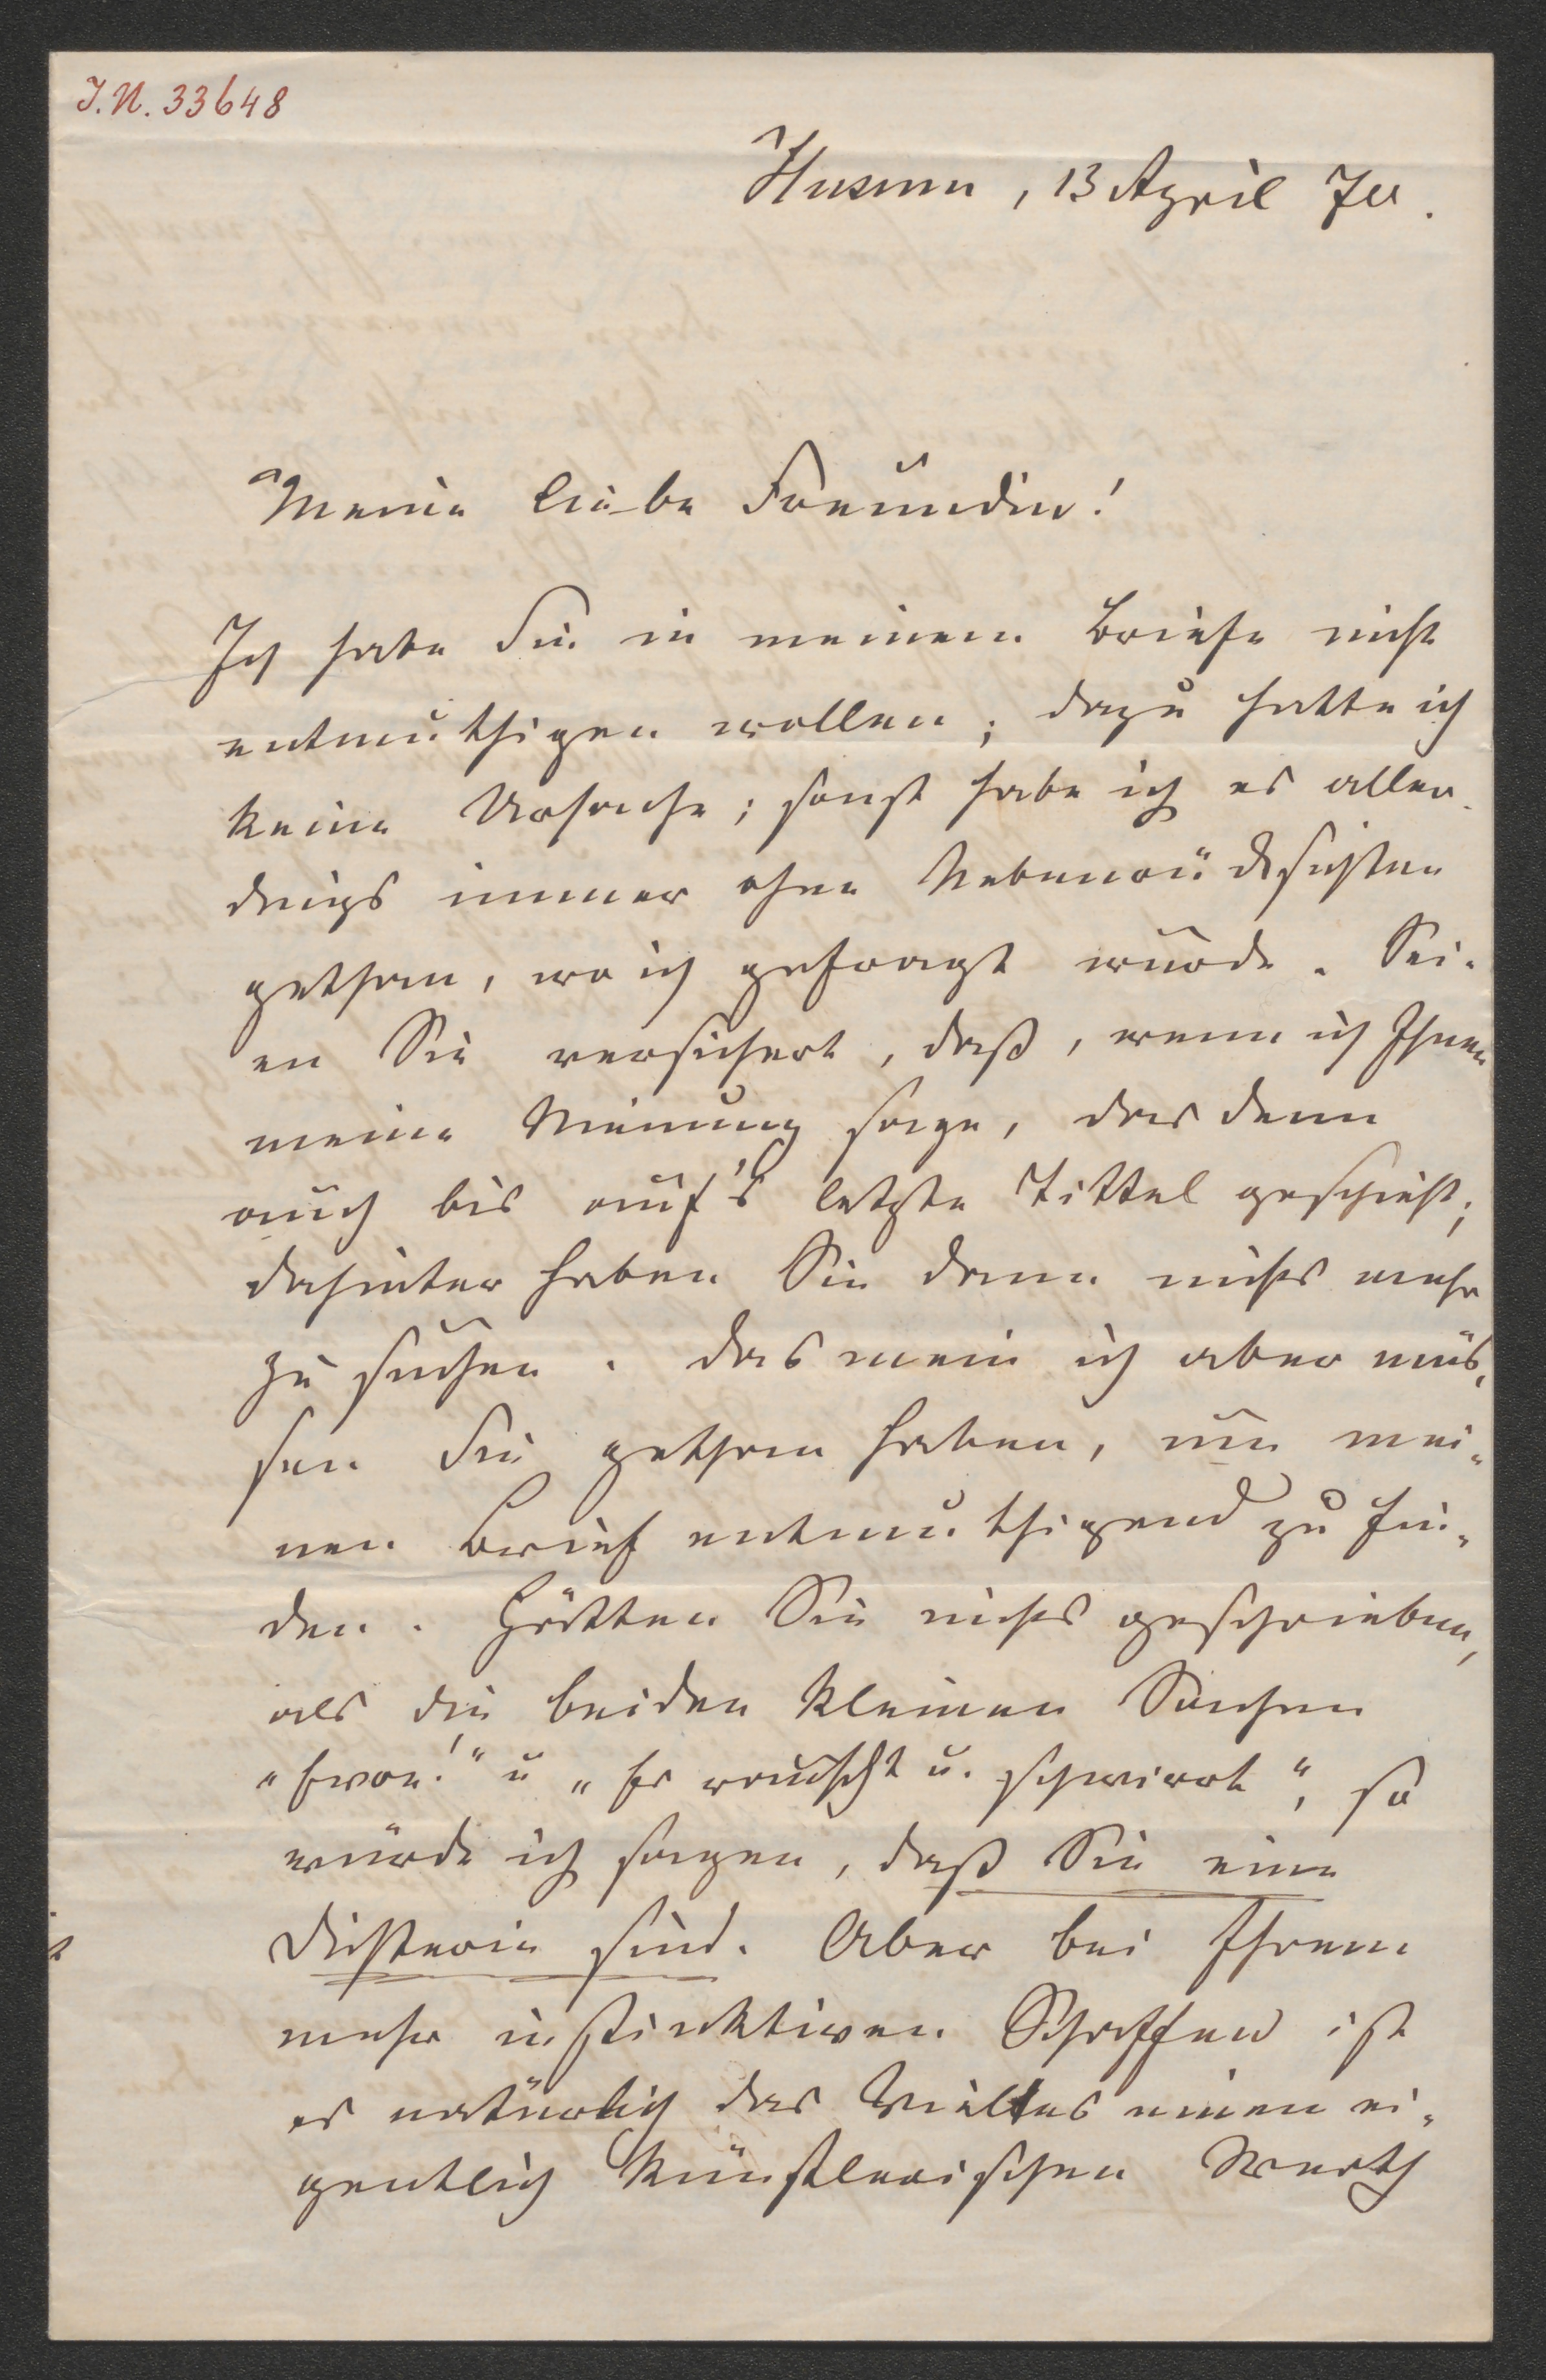 I. N. 33648
Husum, 13 April 70.
Meine liebe Freundin!
Ich habe Sie in meinem Briefe nicht
entmuthigen wollen; dazu hatte ich
keine Ursache; sonst habe ich es aller-
dings immer ohne Nebenrücksichten
gethan, wo ich gefragt wurde. Sei-
en Sie versichert, daß, wenn ich Ihnen
meine Meinung sage, das denn
auch bis auf's letzte Tittel geschieht;
dahinter haben Sie dann nichts mehr
zu suchen. Das mein ich aber müs-
sen Sie gethan haben, um mei-
nen Brief entmuthigend zu fin-
den. Hätten Sie nichts geschrieben,
als die beiden kleinen Sachen
"Ewva!" u "Es rauscht u. schwirrt", so
würde ich sagen, daß Sie eine
Dichterin sind. Aber bei Ihrem
mehr instinktiven Schaffen ist
es natürlich das Vieles einen ei-
gentlich künstlerischen Werth